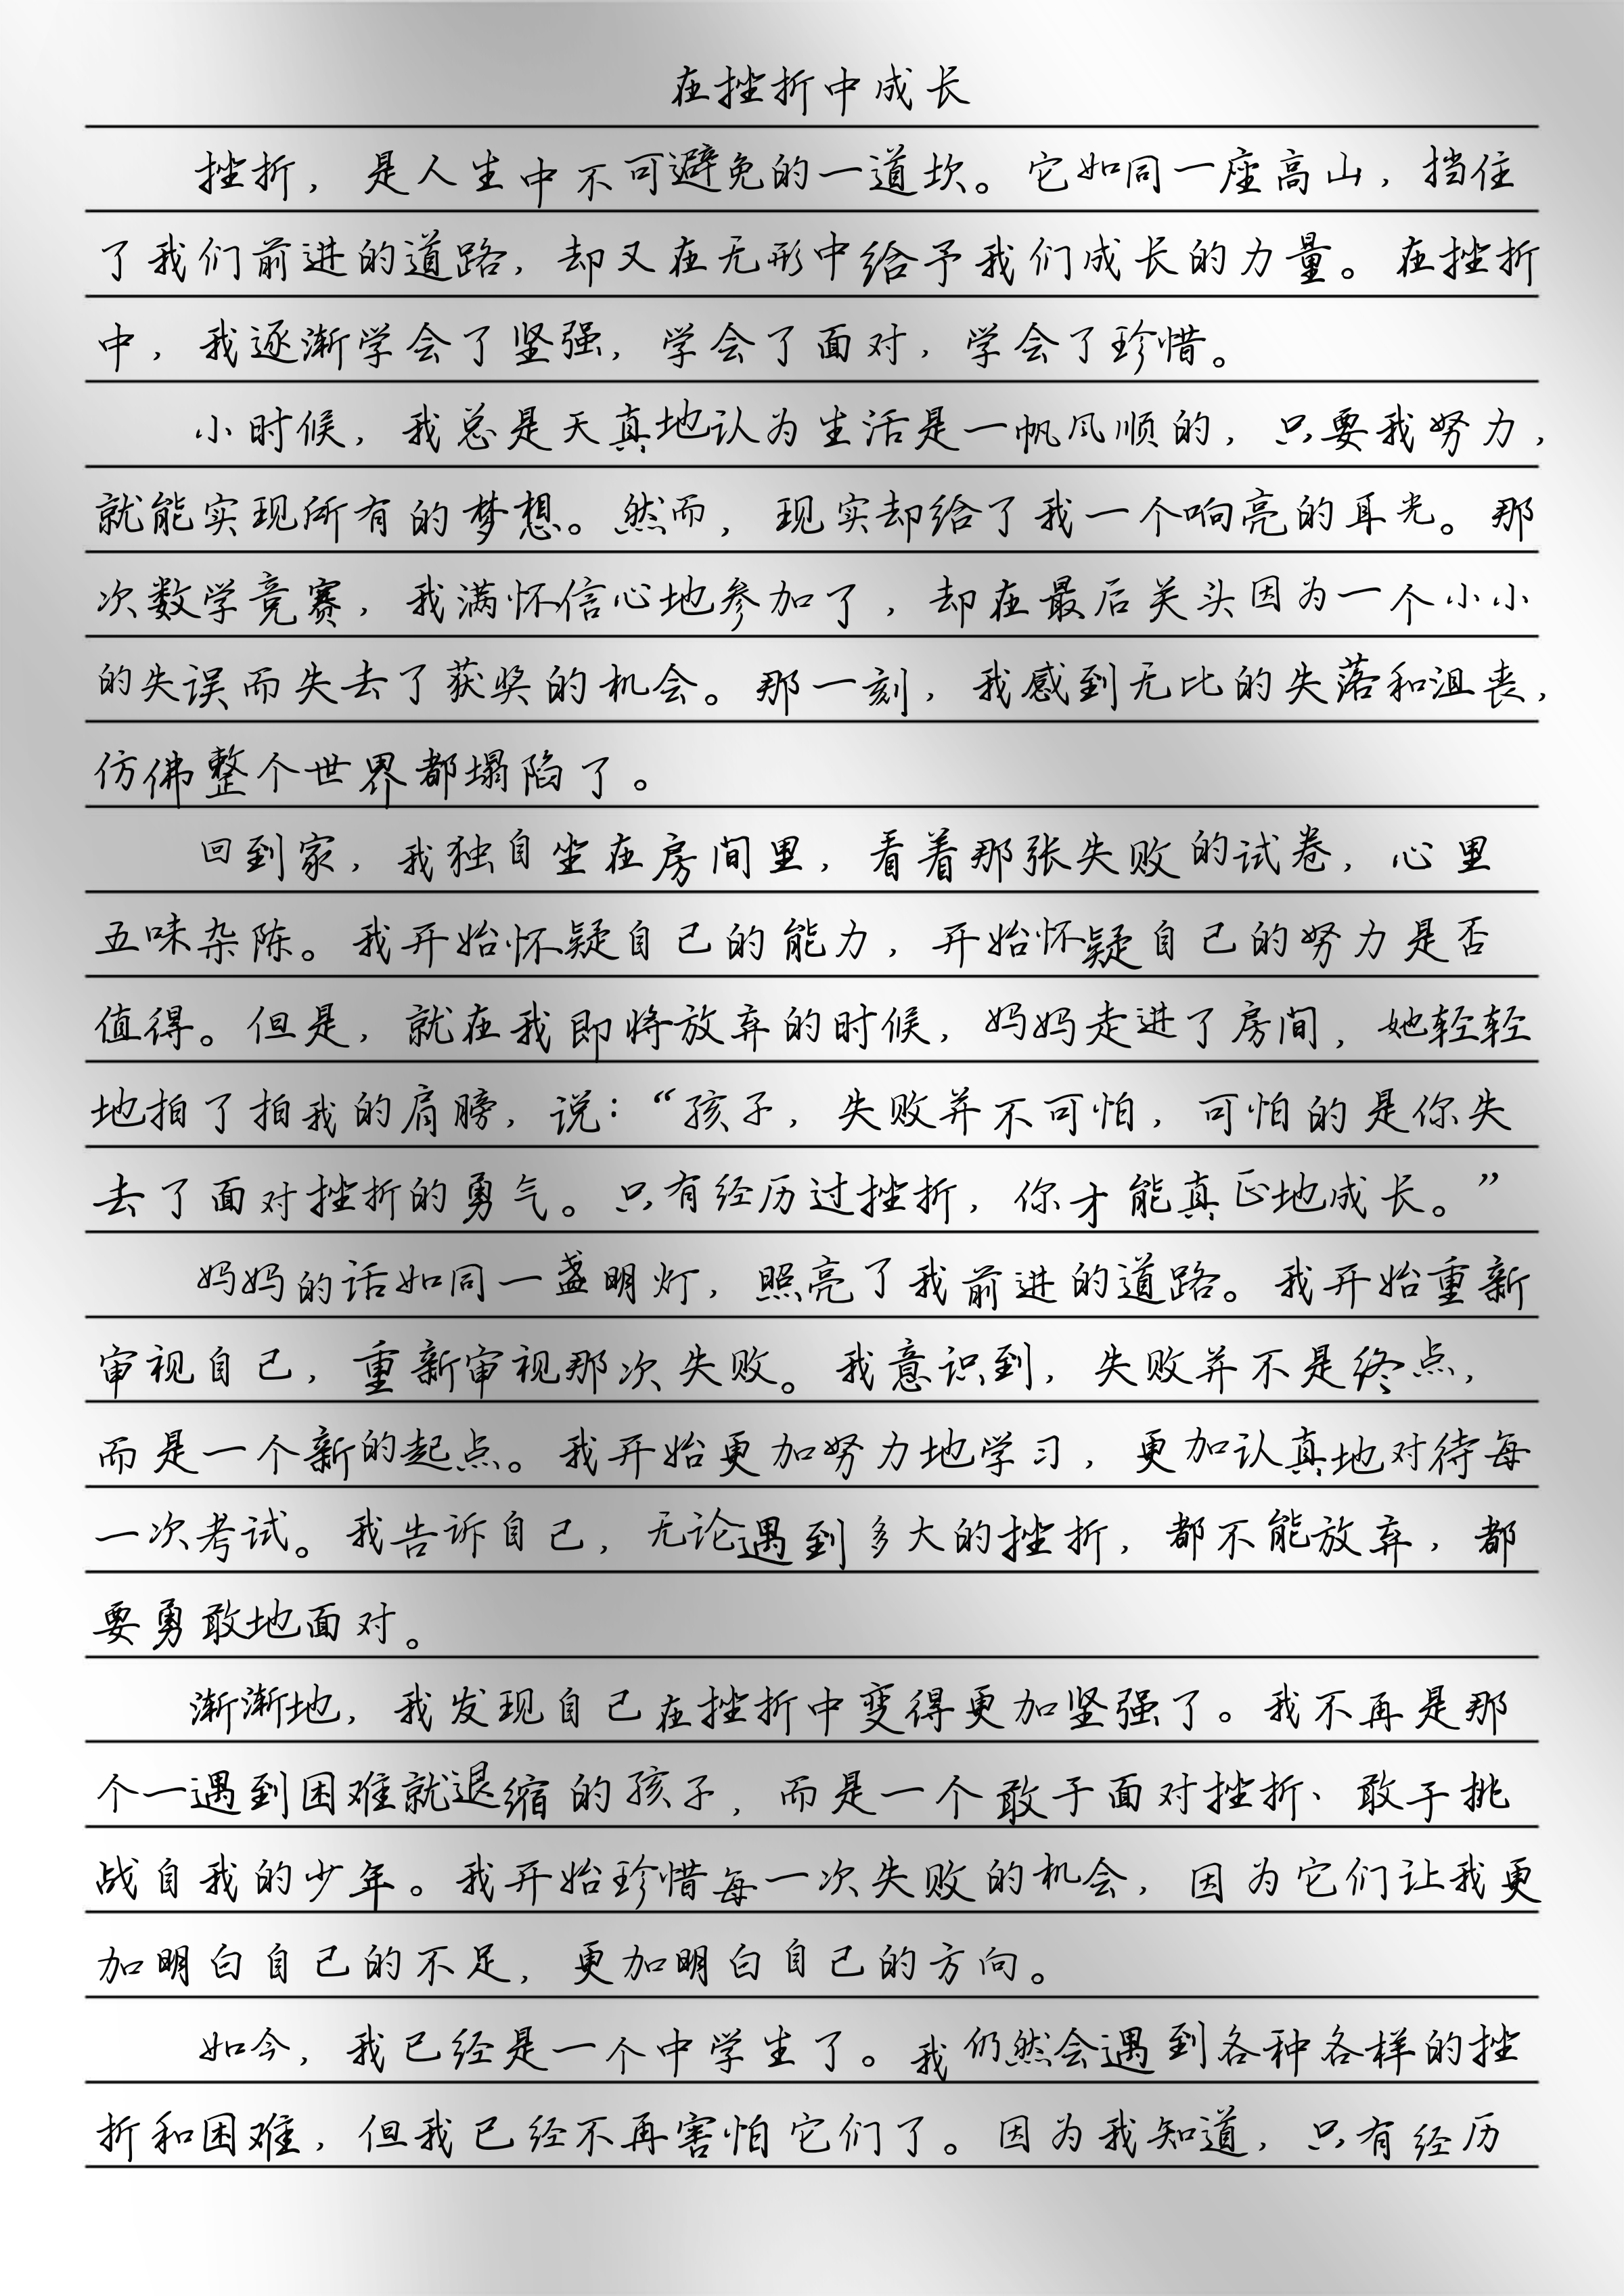 在挫折中成长
挫折，是人生中不可避免的一道坎。它如同一座高山，挡住
了我们前进的道路，却又在无形中给予我们成长的力量。在挫折
中，我逐渐学会了坚强，学会了面对，学会了珍惜。
小时候，我总是天真地认为生活是一帆风顺的，只要我努力，
就能实现所有的梦想。然而，现实却给了我一个响亮的耳光。那
次数学竞赛，我满怀信心地参加了，却在最后关头因为一个小小
的失误而失去了获奖的机会。那一刻，我感到无比的失落和沮丧，
仿佛整个世界都塌陷了。
回到家，我独自坐在房间里，看着那张失败的试卷，心里
五味杂陈。我开始怀疑自己的能力，开始怀疑自己的努力是否
值得。但是，就在我即将放弃的时候，妈妈走进了房间，她轻轻
地拍了拍我的肩膀，说：“孩子，失败并不可怕，可怕的是你失
去了面对挫折的勇气。只有经历过挫折，你才能真正地成长。”
妈妈的话如同一盏明灯，照亮了我前进的道路。我开始重新
审视自己，重新审视那次失败。我意识到，失败并不是终点，
而是一个新的起点。我开始更加努力地学习，更加认真地对待每
一次考试。我告诉自己，无论遇到多大的挫折，都不能放弃，都
要勇敢地面对。
渐渐地，我发现自己在挫折中变得更加坚强了。我不再是那
个一遇到困难就退缩的孩子，而是一个敢于面对挫折、敢于挑
战自我的少年。我开始珍惜每一次失败的机会，因为它们让我更
加明白自己的不足，更加明白自己的方向。
如今，我已经是一个中学生了。我仍然会遇到各种各样的挫
折和困难，但我已经不再害怕它们了。因为我知道，只有经历